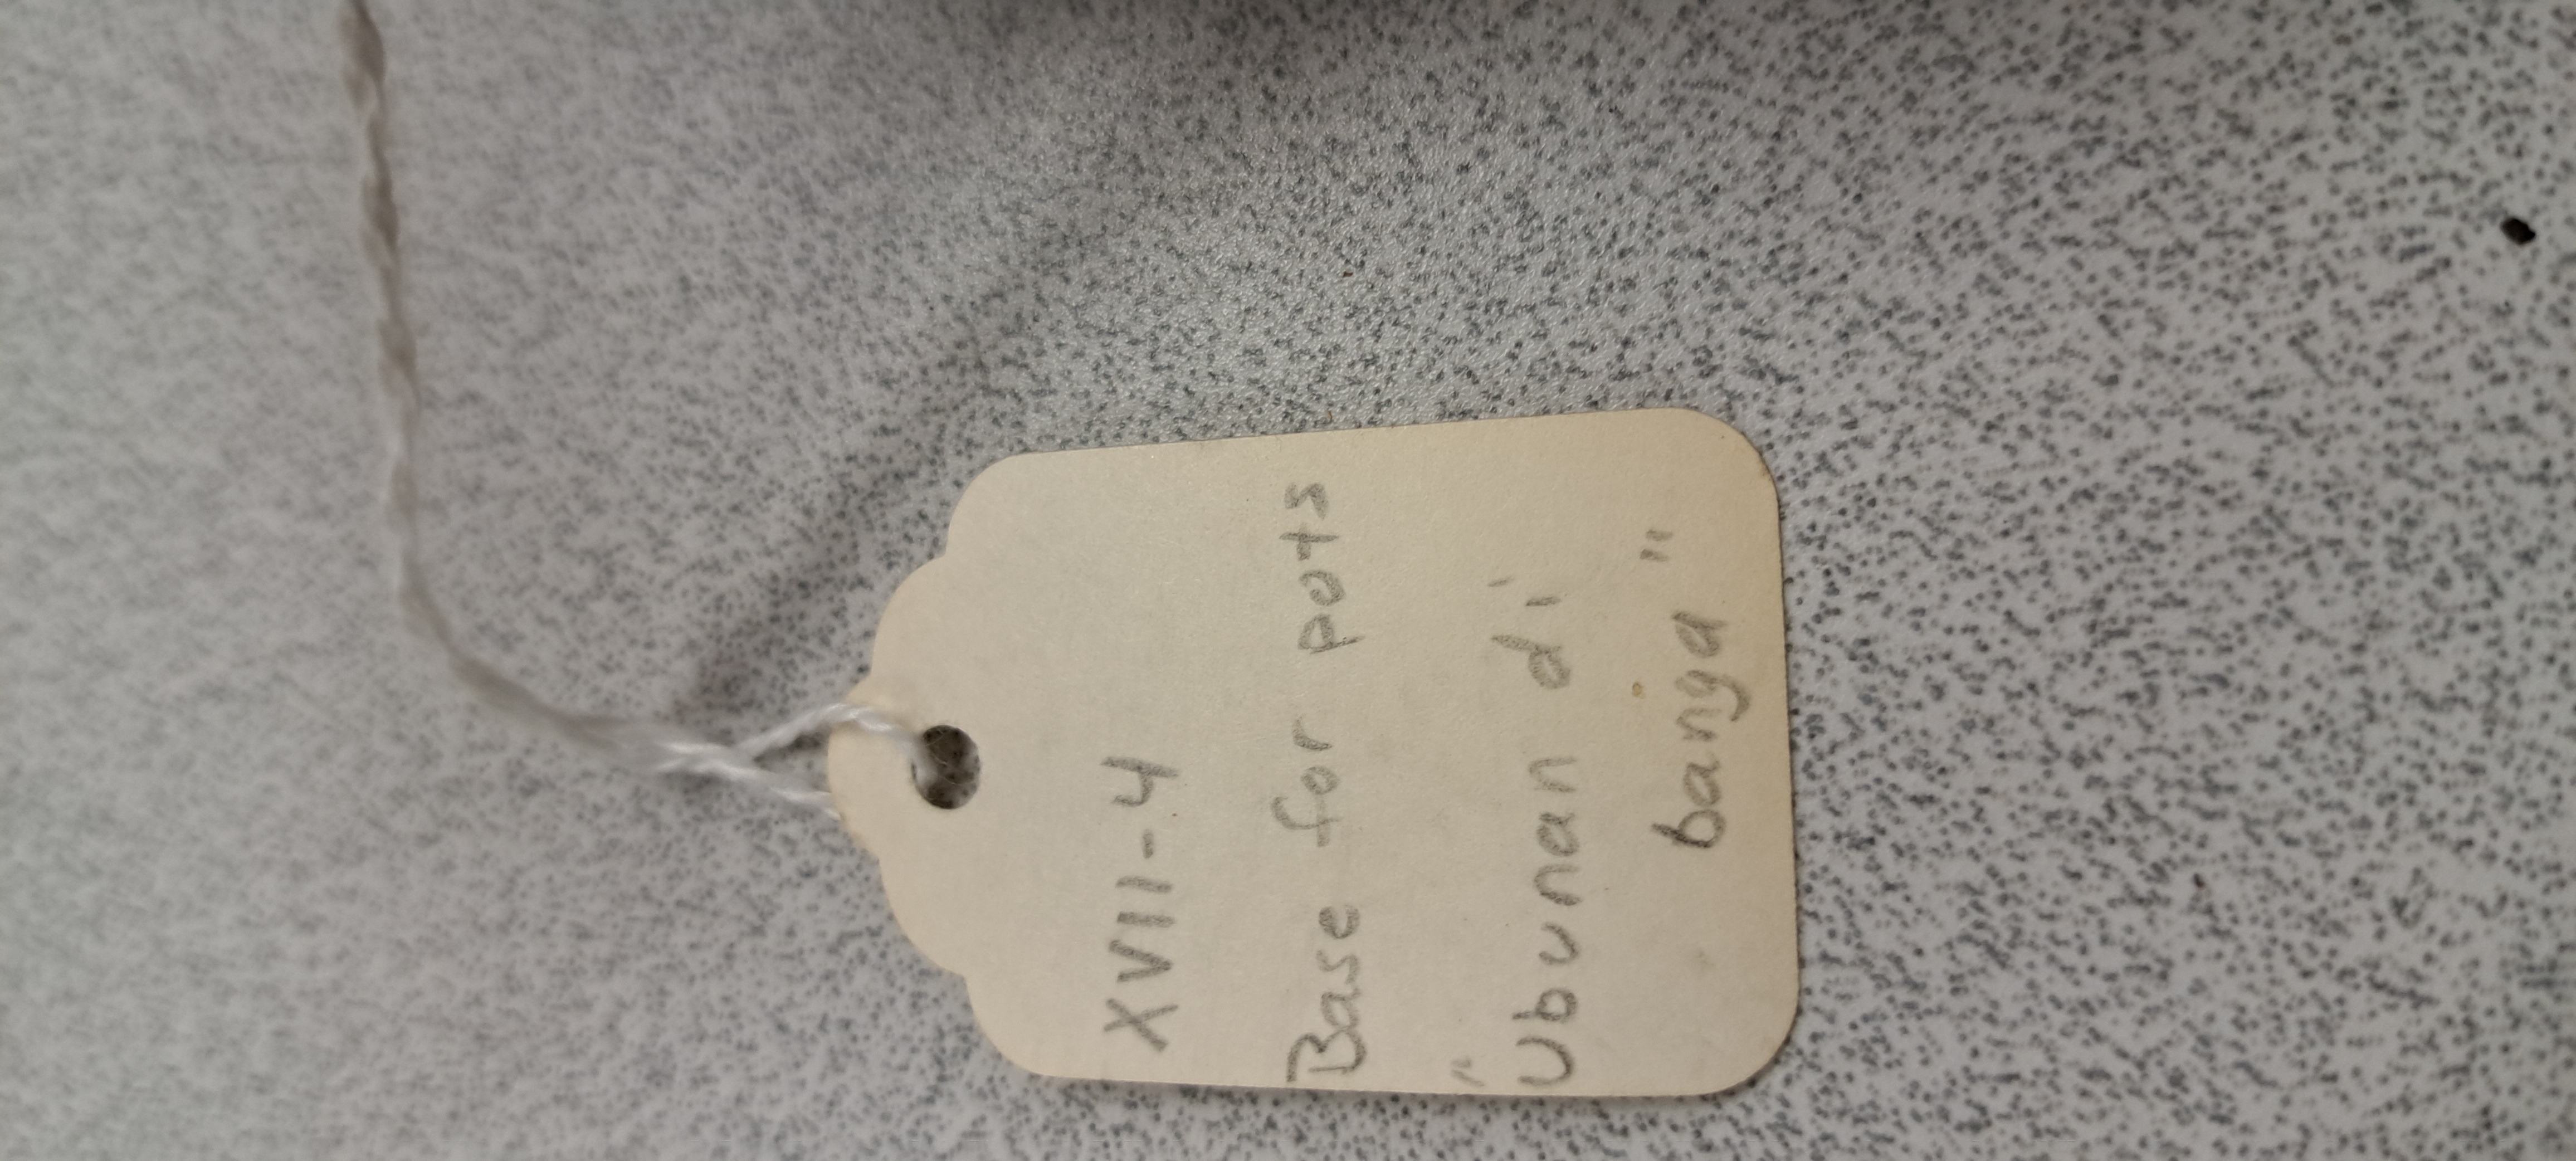 XVII-4
Base for pots
"Ubunan di
banga"